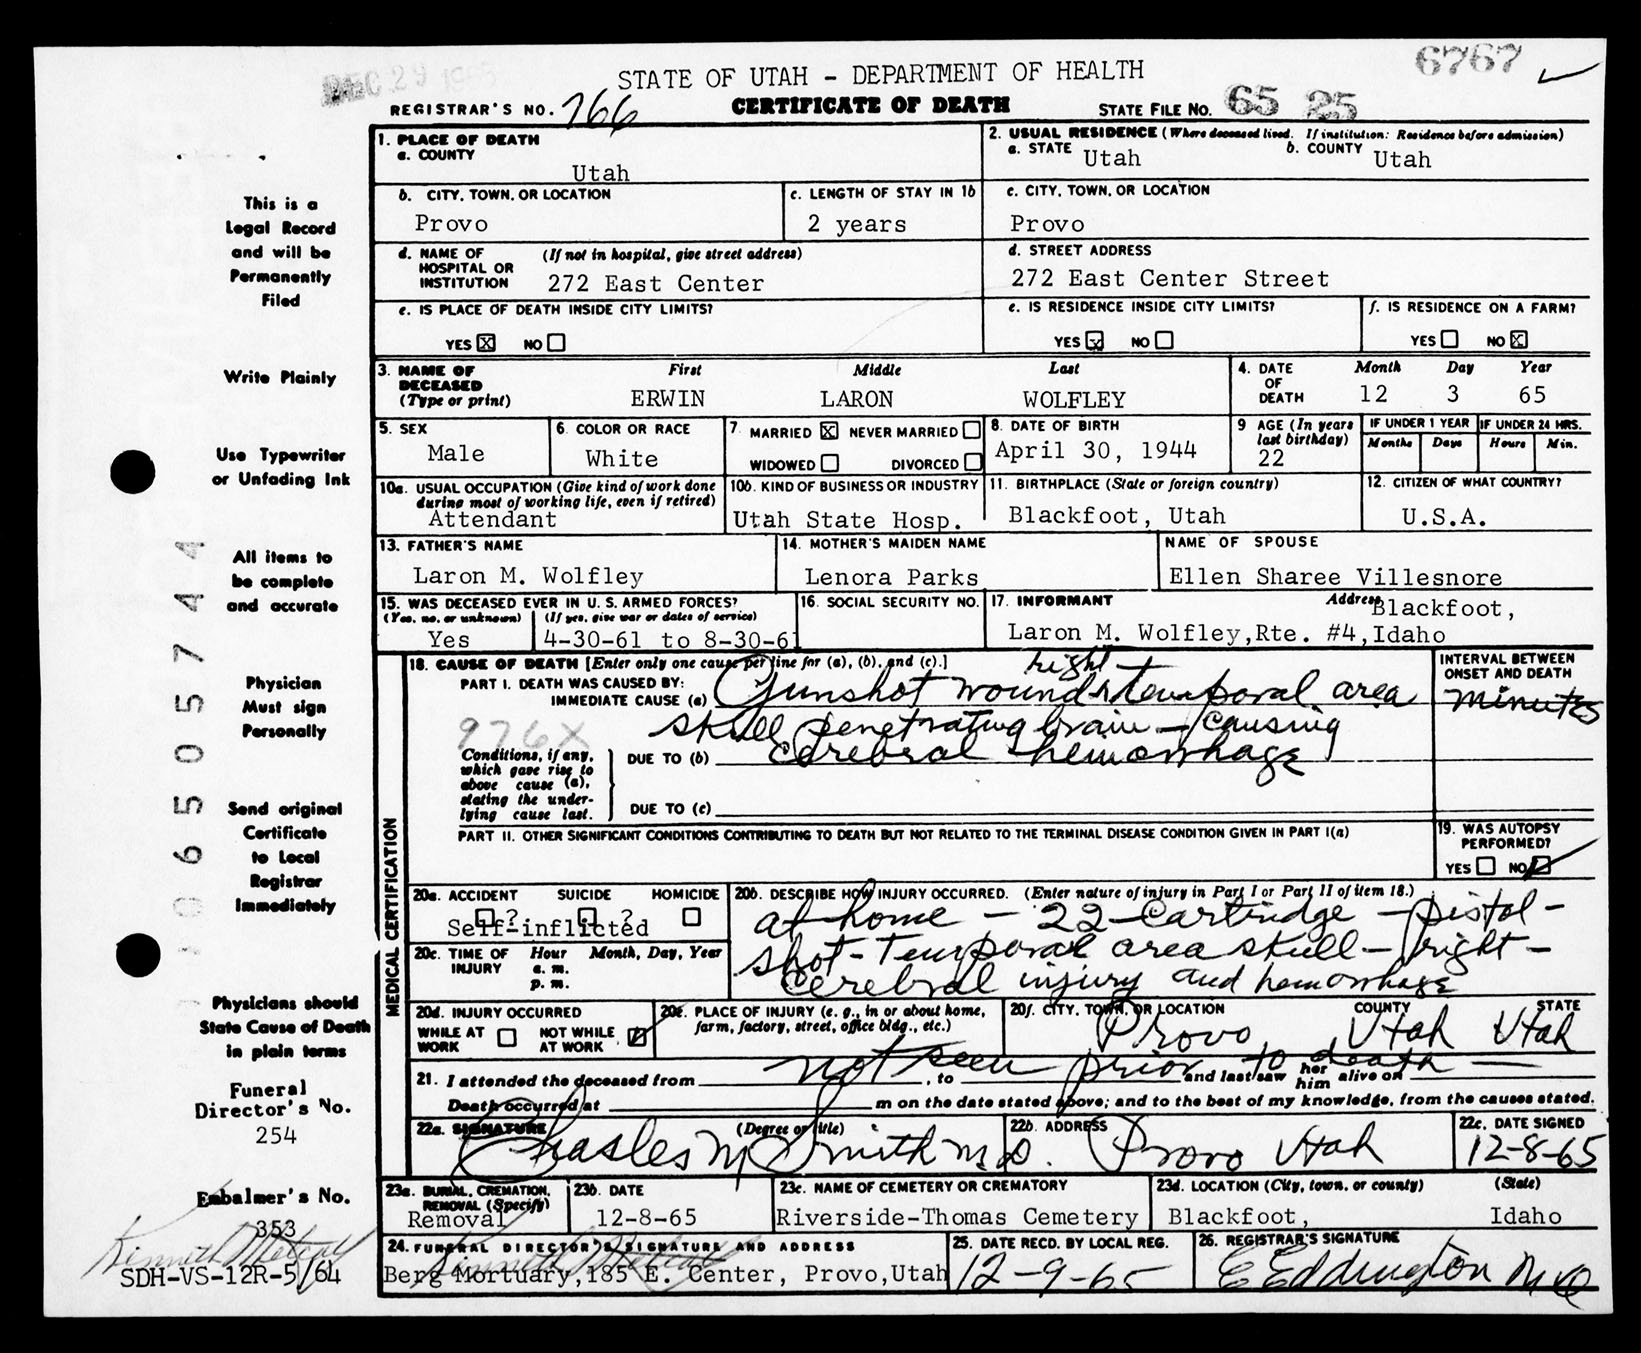 DEC 29 1965
6767
STATE OF UTAH - DEPARTMENT OF HEALTH
REGISTRAR'S NO. 766 CERTIFICATE OF DEATH STATE FILE NO. 65 25
This is a
Legal Record
and will be
Permanently
Filed
Write Plainly
Use Typewriter
or Unfading Ink
All items to
be complete
and accurate
Physician
Must sign
Personally
Send original
Certificate
to Local
Registrar
Immediately
Physicians should
State Cause of Death
in plain terms
Funeral
Director's No.
254
Embalmer's No.
353
SDH-VS-12R-5/64
06505744
1. PLACE OF DEATH
a. COUNTY
Utah
2. USUAL RESIDENCE (Where deceased lived. If institution: Residence before admission)
a. STATE Utah b. COUNTY Utah
b. CITY, TOWN, OR LOCATION
Provo
c. LENGTH OF STAY IN 1b
2 years
c. CITY, TOWN, OR LOCATION
Provo
d. NAME OF HOSPITAL OR INSTITUTION (If not in hospital, give street address)
272 East Center
d. STREET ADDRESS
272 East Center Street
e. IS PLACE OF DEATH INSIDE CITY LIMITS?
YES X NO
e. IS RESIDENCE INSIDE CITY LIMITS?
YES X NO
f. IS RESIDENCE ON A FARM?
YES NO X
3. NAME OF DECEASED (Type or print) First Middle Last
ERWIN LARON WOLFLEY
4. DATE OF DEATH Month Day Year
12 3 65
5. SEX
Male
6. COLOR OR RACE
White
7. MARRIED X NEVER MARRIED
WIDOWED DIVORCED
8. DATE OF BIRTH
April 30, 1944
9. AGE (In years last birthday)
22
IF UNDER 1 YEAR IF UNDER 24 HRS.
Months Days Hours Min.
10a. USUAL OCCUPATION (Give kind of work done during most of working life, even if retired)
Attendant
10b. KIND OF BUSINESS OR INDUSTRY
Utah State Hosp.
11. BIRTHPLACE (State or foreign country)
Blackfoot, Utah
12. CITIZEN OF WHAT COUNTRY?
U.S.A.
13. FATHER'S NAME
Laron M. Wolfley
14. MOTHER'S MAIDEN NAME
Lenora Parks
NAME OF SPOUSE
Ellen Sharee Villesnore
15. WAS DECEASED EVER IN U. S. ARMED FORCES?
(Yes, no, or unknown) (If yes, give war or dates of service)
Yes 4-30-61 to 8-30-61
16. SOCIAL SECURITY NO.
17. INFORMANT Address
Blackfoot,
Laron M. Wolfley,Rte. #4,Idaho
MEDICAL CERTIFICATION
18. CAUSE OF DEATH [Enter only one cause per line for (a), (b), and (c).]
INTERVAL BETWEEN ONSET AND DEATH
PART I. DEATH WAS CAUSED BY:
right
IMMEDIATE CAUSE (a) Gunshot wound temporal area
Minutes
976X
skull penetrating brain - causing
Conditions, if any, which gave rise to above cause (a), stating the underlying cause last.
DUE TO (b) cerebral hemorrhage
DUE TO (c)
PART II. OTHER SIGNIFICANT CONDITIONS CONTRIBUTING TO DEATH BUT NOT RELATED TO THE TERMINAL DISEASE CONDITION GIVEN IN PART I(a)
19. WAS AUTOPSY PERFORMED?
YES NO
20a. ACCIDENT SUICIDE HOMICIDE
? ?
Self-inflicted
20b. DESCRIBE HOW INJURY OCCURRED. (Enter nature of injury in Part I or Part II of item 18.)
at home - 22 Cartridge - pistol -
shot - temporal area skull - right -
cerebral injury and hemorrhage
20c. TIME OF INJURY Hour Month, Day, Year
a. m.
p. m.
20d. INJURY OCCURRED
WHILE AT WORK NOT WHILE AT WORK
20e. PLACE OF INJURY (e. g., in or about home, farm, factory, street, office bldg., etc.)
20f. CITY, TOWN, OR LOCATION COUNTY STATE
Provo Utah Utah
not seen prior to death
21. I attended the deceased from , to and last saw her him alive on
Death occurred at m on the date stated above; and to the best of my knowledge, from the causes stated.
22a. SIGNATURE (Degree or title)
Charles M Smith M.D.
22b. ADDRESS
Provo Utah
22c. DATE SIGNED
12-8-65
23a. BURIAL, CREMATION, REMOVAL (Specify)
Removal
23b. DATE
12-8-65
23c. NAME OF CEMETERY OR CREMATORY
Riverside-Thomas Cemetery
23d. LOCATION (City, town, or county) (State)
Blackfoot, Idaho
24. FUNERAL DIRECTOR'S SIGNATURE AND ADDRESS
Berg Mortuary,185 E. Center, Provo,Utah
25. DATE RECD. BY LOCAL REG.
12-9-65
26. REGISTRAR'S SIGNATURE